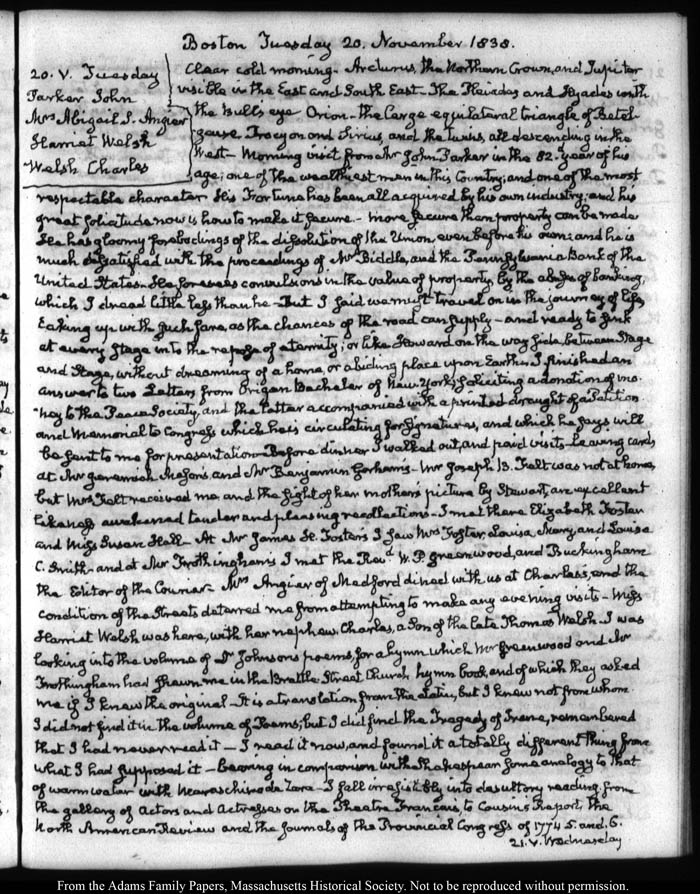 Boston Tuesday 20. November 1838.
20. V. Tuesday
Parker John
Mrs Abigail S. Angier
Harriet Welsh
Welsh Charles
Clear cold morning. Arcturus, the Northern Crown, and Jupiter
visible in the East and South East. The Pleiades and Hyades with
the bull's eye Orion. the large equilateral triangle of Betel-
geuse Procyon and Sirius, and the twins, all descending in the
West. Morning visit from Mr John Parker in the 82. year of his
age; one of the wealthiest men in this Country, and one of the most
respectable character His Fortune has been all acquired by his own industry, and his
great solicitude now is how to make it secure. more secure than property can be made
He has gloomy forebodings of the dissolution of the Union, even before his own; and he is
much dissatisfied with the proceedings of Mr Biddle, and the Pennsylvania Bank of the
United States. He foresees convulsions in the value of property, by the abuse of banking,
which I dread little less than he. But I said we must travel on in the journey of life
taking up with such fare, as the chances of the road can supply. and ready to sink
at every stage into the repose of eternity; or like Howard on the way side between Stage
and Stage, without dreaming of a home, or abiding place upon Earth. I finished an
answer to two Letters from Origen Bacheler of New York; soliciting a donation of mo-
ney to the Peace Society, and the latter accompanied with a printed draught of a Petition
and Memorial to Congress which he is circulating for signatures, and which he says will
be sent to me for presentation. Before dinner I walked out, and paid visits. leaving cards
at Mr Jeremiah Mason's, and Mr Benjamin Gorham's. Mr Joseph B. Felt was not at home,
but Mrs Felt received me and the sight of her mother's picture by Stewart, an excellent
likeness awakened tender and pleasing recollections. I met there Elizabeth Foster
and Miss Susan Hall. At Mr James H. Foster's I saw Mrs Foster, Louisa, Mary, and Louisa
C. Smith. and at Mr Frothingham's I met the Revd. W. P. Greenwood, and Buckingham
the Editor of the Courier. Mrs Angier of Medford dined with us at Charles's, and the
condition of the Streets deterred me from attempting to make any evening visits. Miss
Harriet Welsh was here, with her nephew Charles, a Son of the late Thomas Welsh. I was
looking into the volume of Dr Johnson's poems, for a hymn which Mr Greenwood and Mr
Frothingham had shewn me in the Brattle Street Church hymn book, and of which they asked
me if I knew the original. It is a translation from the Latin, but I knew not from whom
I did not find it in the volume of Poems; but I did find the Tragedy of Irene, remembered
that I had never read it — I read it now, and found it a totally different thing from
what I had supposed it — bearing in comparison with Shakespear some analogy to that
of warm water with Maraschino de Zara. I fall irresistibly into desultory reading from
the gallery of Actors and Actresses on the Theatre Francais, to Cousin's Report, the
North American Review and the Journals of the Provincial Congress of 1774 5. and 6.
21. V. Wednesday
From the Adams Family Papers, Massachusetts Historical Society. Not to be reproduced without permission.